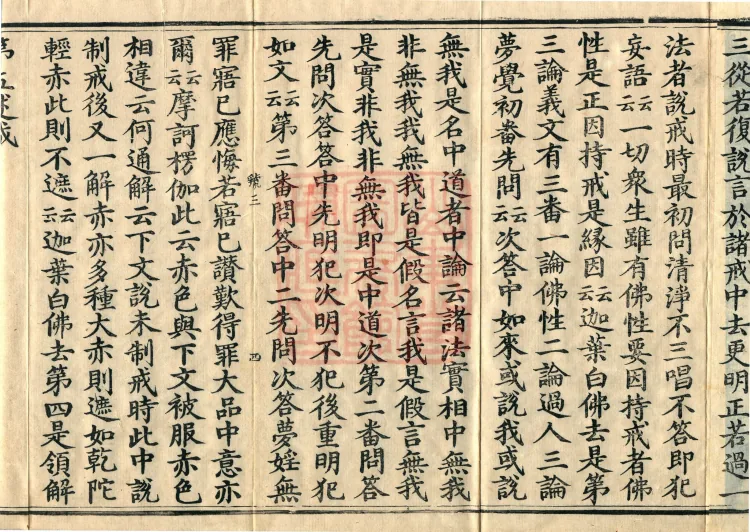 三從若復說言於諸戒中去更明正若過一
法者說戒時最初問清淨不三唱不答即犯
妄語云云一切衆生雖有佛性要因持戒者佛
性是正因持戒是緣因云云迦葉白佛去是第
三論義文有三番一論佛性二論過人三論
夢覺初番先問云云次答中如來或說我或說
無我是名中道者中論云諸法實相中無我
非無我我無我皆是假名言我是假言無我
是實非我非無我即是中道次第二番問答
先問次答答中先明犯次明不犯後重明犯
如文云云第三番問答中二先問次答夢婬無
號三
四
罪寤已應悔若寤已讃歎得罪大品中意亦
爾云云摩訶楞伽此云赤色與下文被服赤色
相違云何通解云下文說未制戒時此中說
制戒後又一解赤亦多種大赤則遮如乾陀
輕赤此則不遮云云迦葉白佛去第四是領解